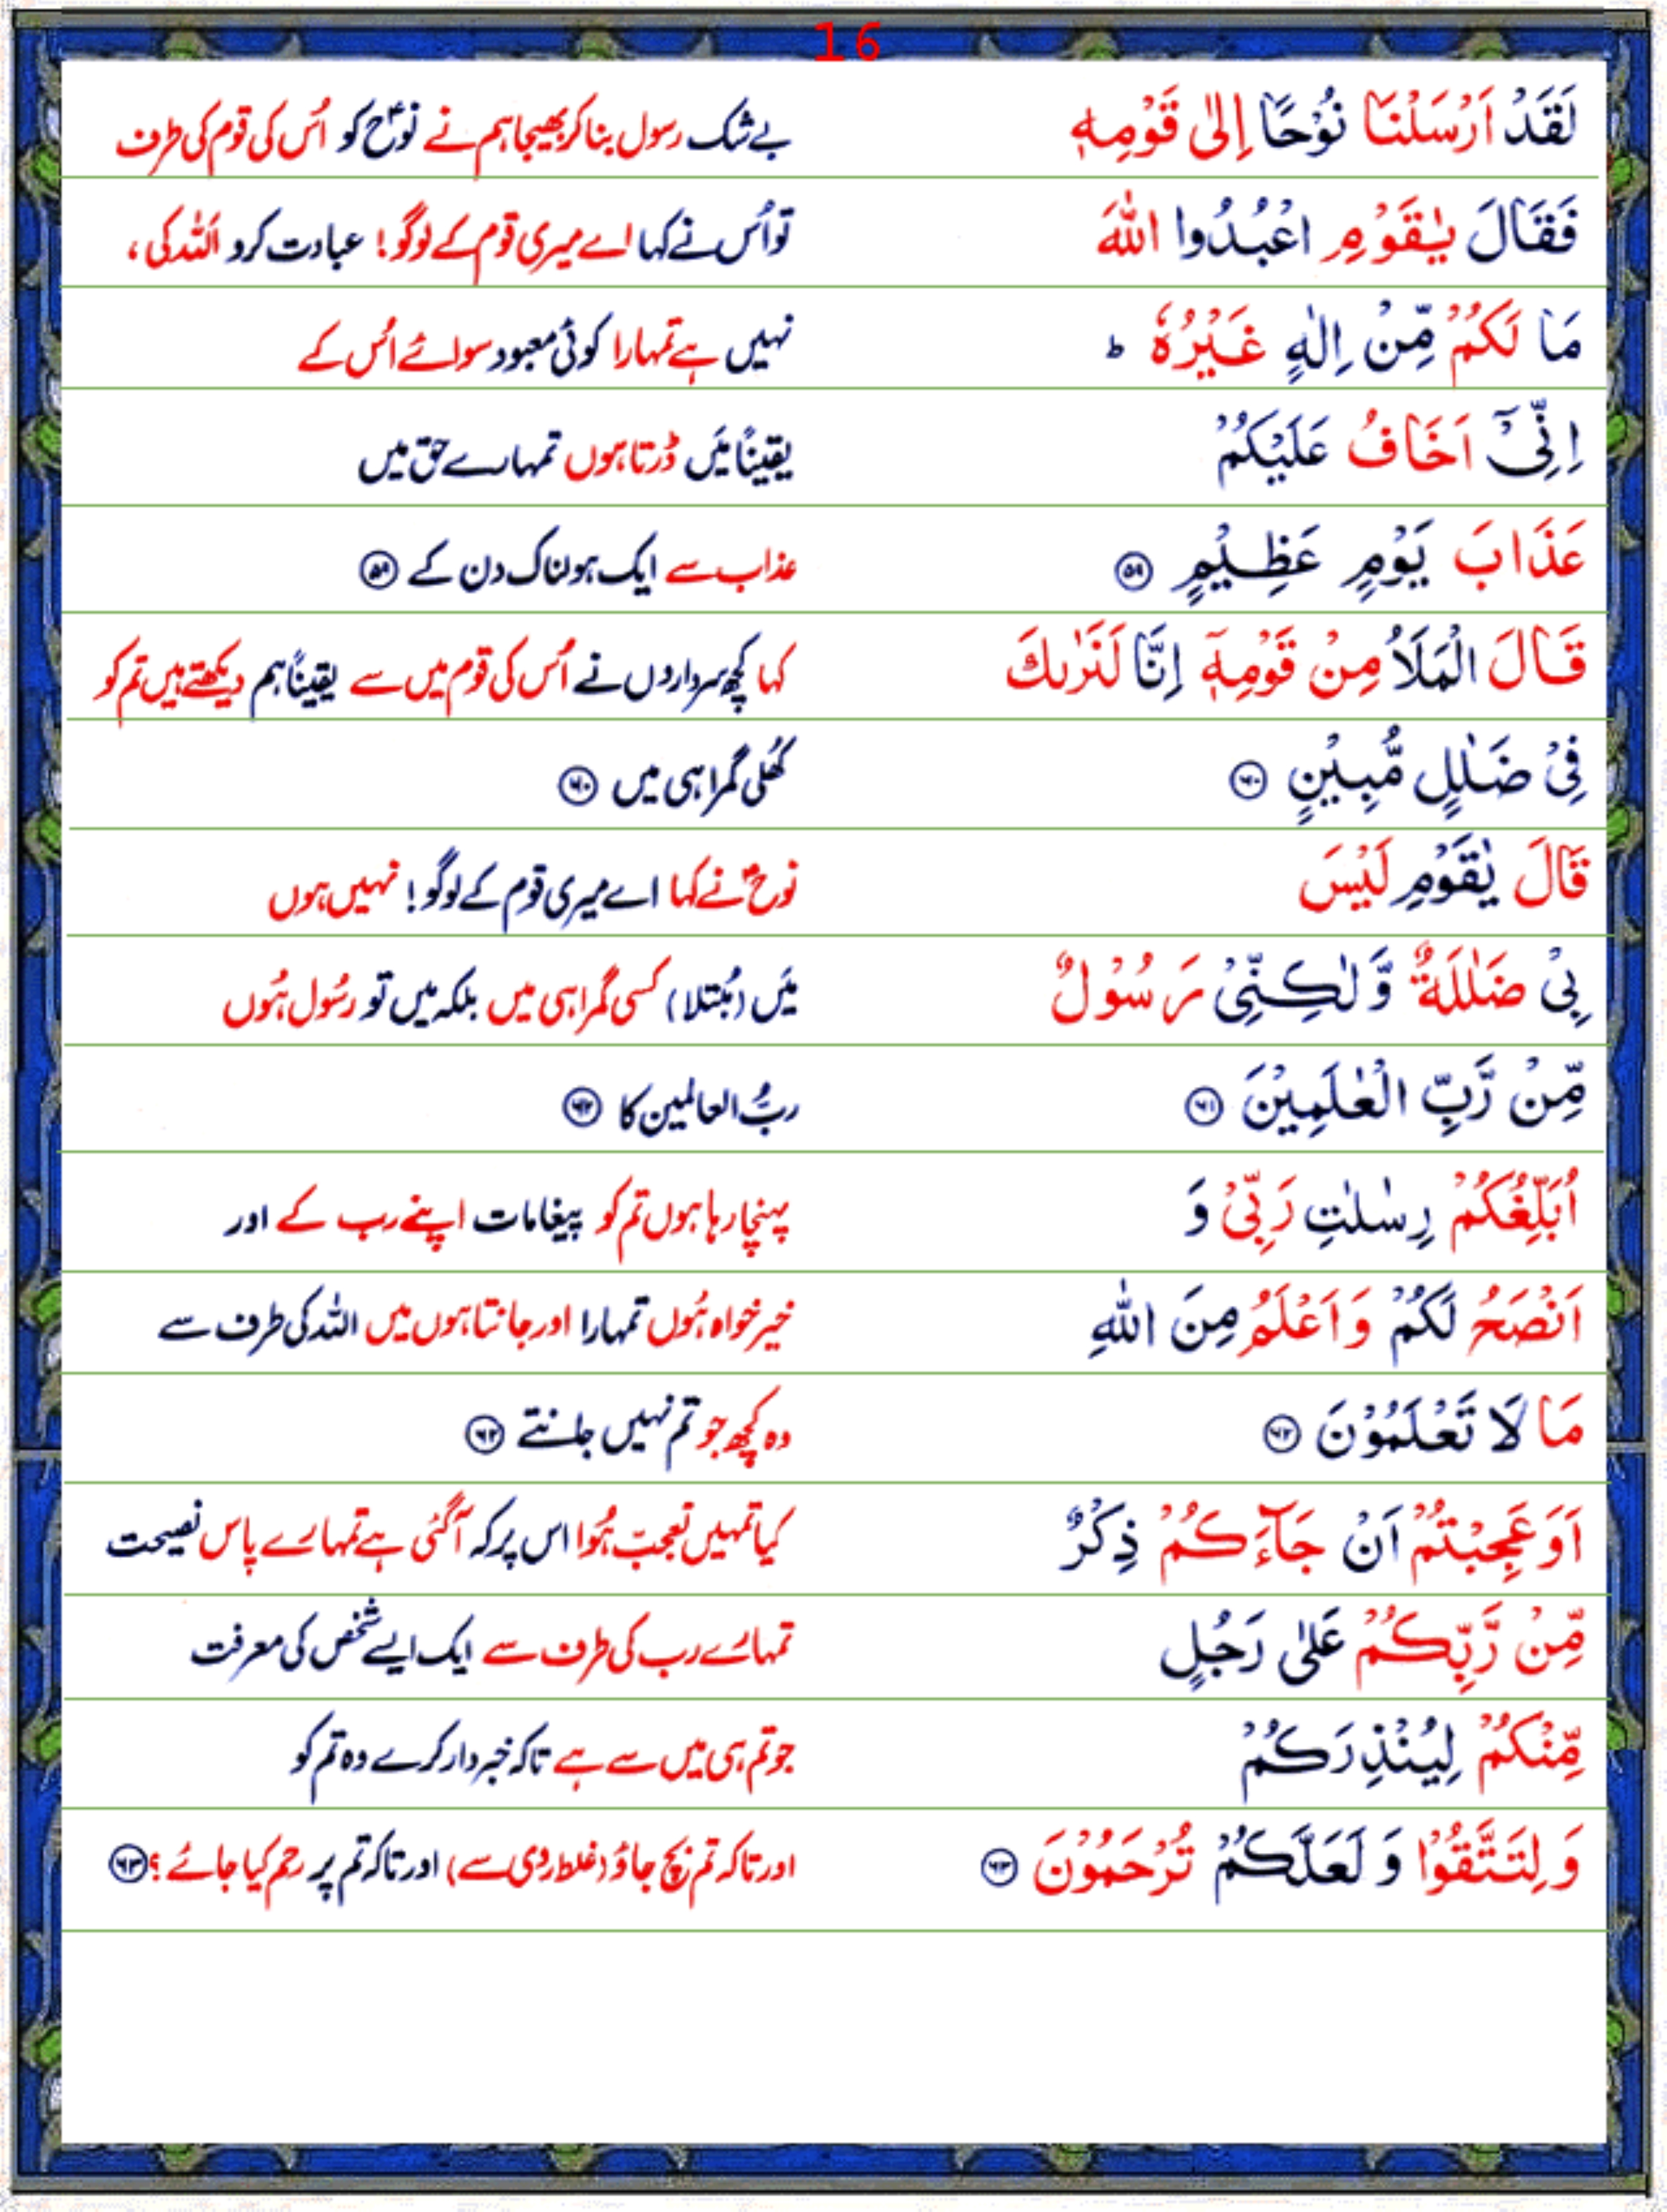 16
لَقَدْ اَرْسَلْنَا نُوْحًا اِلٰى قَوْمِهٖ بے شک رسول بنا کر بھیجا ہم نے نوحؑ کو اُس کی قوم کی طرف
فَقَالَ يٰقَوْمِ اعْبُدُوا اللّٰهَ تو اُس نے کہا اے میری قوم کے لوگو! عبادت کرو اللہ کی،
مَا لَكُمْ مِّنْ اِلٰهٍ غَيْرُهٗ ؕ نہیں ہے تمہارا کوئی معبود سوائے اُس کے
اِنِّيْٓ اَخَافُ عَلَيْكُمْ یقیناً میَں ڈرتا ہوں تمہارے حق میں
عَذَابَ يَوْمٍ عَظِيْمٍ ۵۹ عذاب سے ایک ہولناک دن کے ۵۹
قَالَ الْمَلَاُ مِنْ قَوْمِهٖٓ اِنَّا لَنَرٰىكَ کہا کچھ سرداروں نے اُس کی قوم میں سے یقیناً ہم دیکھتے ہیں تم کو
فِيْ ضَلٰلٍ مُّبِيْنٍ ۶۰ کھُلی گمراہی میں ۶۰
قَالَ يٰقَوْمِ لَيْسَ نوحؑ نے کہا اے میری قوم کے لوگو! نہیں ہوں
بِيْ ضَلٰلَةٌ وَّلٰكِنِّيْ رَسُوْلٌ میَں (مُبتلا) کسی گمراہی میں بلکہ میں تو رسُول ہُوں
مِّنْ رَّبِّ الْعٰلَمِيْنَ ۶۱ ربُّ العالمین کا
اُبَلِّغُكُمْ رِسٰلٰتِ رَبِّيْ وَ پہنچا رہا ہوں تم کو پیغامات اپنے رب کے اور
اَنْصَحُ لَكُمْ وَاَعْلَمُ مِنَ اللّٰهِ خیر خواہ ہُوں تمہارا اور جانتا ہوں میں اللہ کی طرف سے
مَا لَا تَعْلَمُوْنَ ۶۲ وہ کچھ جو تم نہیں جانتے ۶۲
اَوَعَجِبْتُمْ اَنْ جَآءَكُمْ ذِكْرٌ کیا تمہیں تعجب ہُوا اس پر کہ آگئی ہے تمہارے پاس نصیحت
مِّنْ رَّبِّكُمْ عَلٰى رَجُلٍ تمہارے رب کی طرف سے ایک ایسے شخص کی معرفت
مِّنْكُمْ لِيُنْذِرَكُمْ جو تم ہی میں سے ہے تاکہ خبردار کرے وہ تم کو
وَلِتَتَّقُوْا وَلَعَلَّكُمْ تُرْحَمُوْنَ ۶۳ اور تاکہ تم بچ جاؤ (غلط روی سے) اور تاکہ تم پر رحم کیا جائے؟ ۶۳